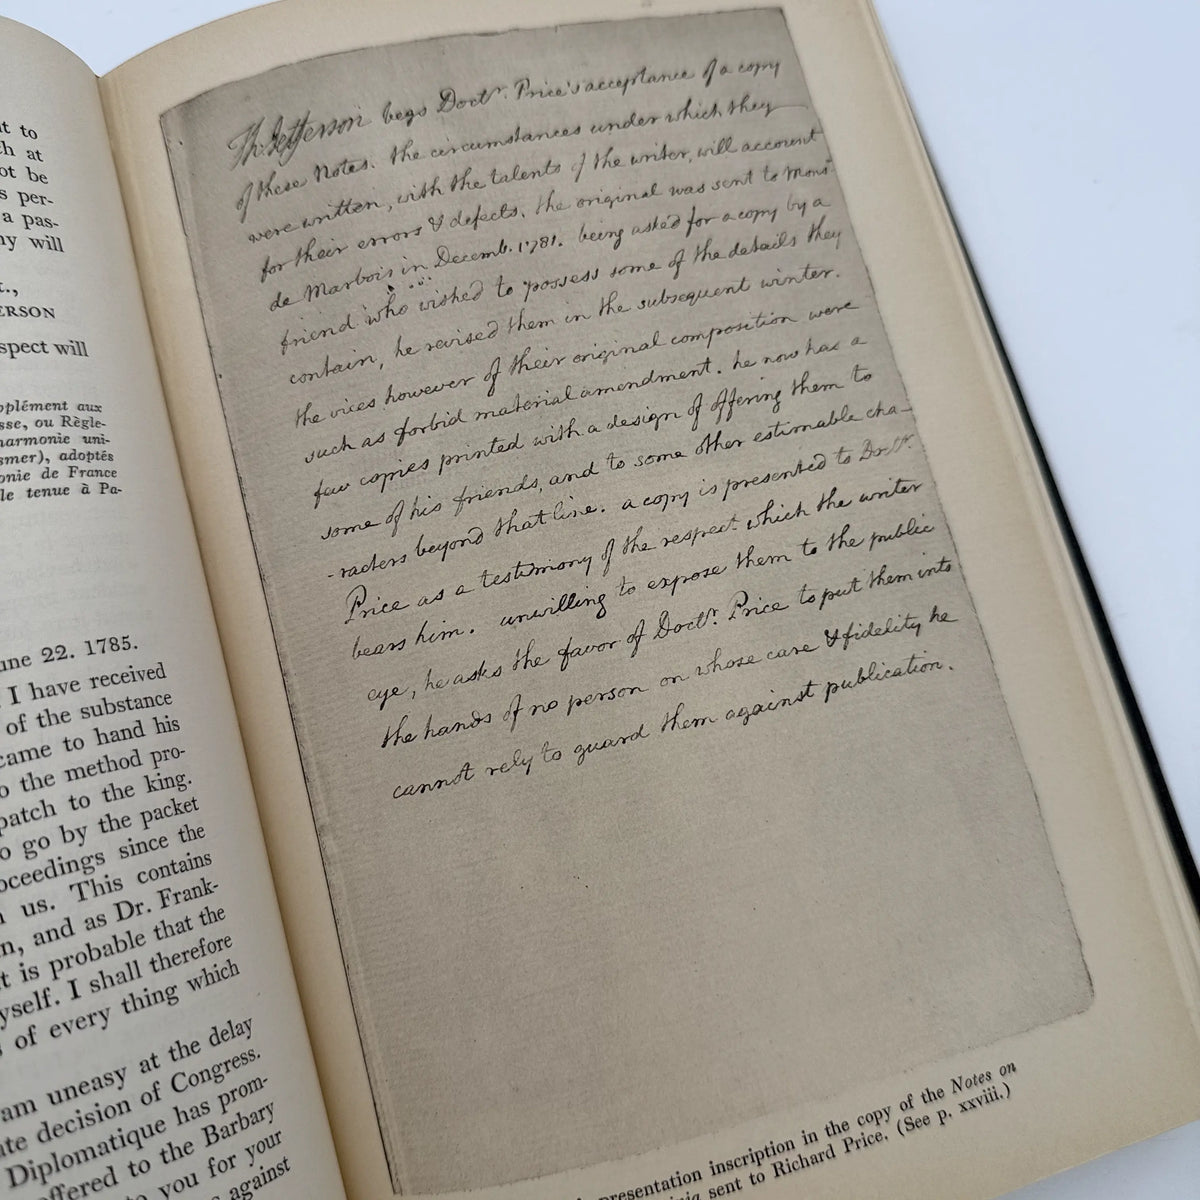 t to
ch at
ot be
s per-
a pas-
ny will
t.,
ERSON
spect will
pplément aux
sse, ou Règle-
harmonie uni-
smer), adoptés
onie de France
le tenue à Pa-
une 22. 1785.
I have received
of the substance
came to hand his
o the method pro-
patch to the king.
o go by the packet
oceedings since the
us. This contains
n, and as Dr. Frank-
t is probable that the
yself. I shall therefore
of every thing which
am uneasy at the delay
ate decision of Congress.
Diplomatique has prom-
offered to the Barbary
to you for your
against
Th: Jefferson begs Doctr. Price's acceptance of a copy
of these Notes. the circumstances under which they
were written, with the talents of the writer, will account
for their errors & defects. the original was sent to Monsr.
de Marbois in Decemb. 1781. being asked for a copy by a
friend who wished to possess some of the details they
contain, he revised them in the subsequent winter.
the vices however of their original composition were
such as forbid material amendment. he now has a
few copies printed with a design of offering them to
some of his friends, and to some other estimable cha-
-racters beyond that line. a copy is presented to Doctr.
Price as a testimony of the respect which the writer
bears him. unwilling to expose them to the public
eye, he asks the favor of Doctr. Price to put them into
the hands of no person on whose care & fidelity he
cannot rely to guard them against publication.
presentation inscription in the copy of the Notes on
sent to Richard Price. (See p. xxviii.)